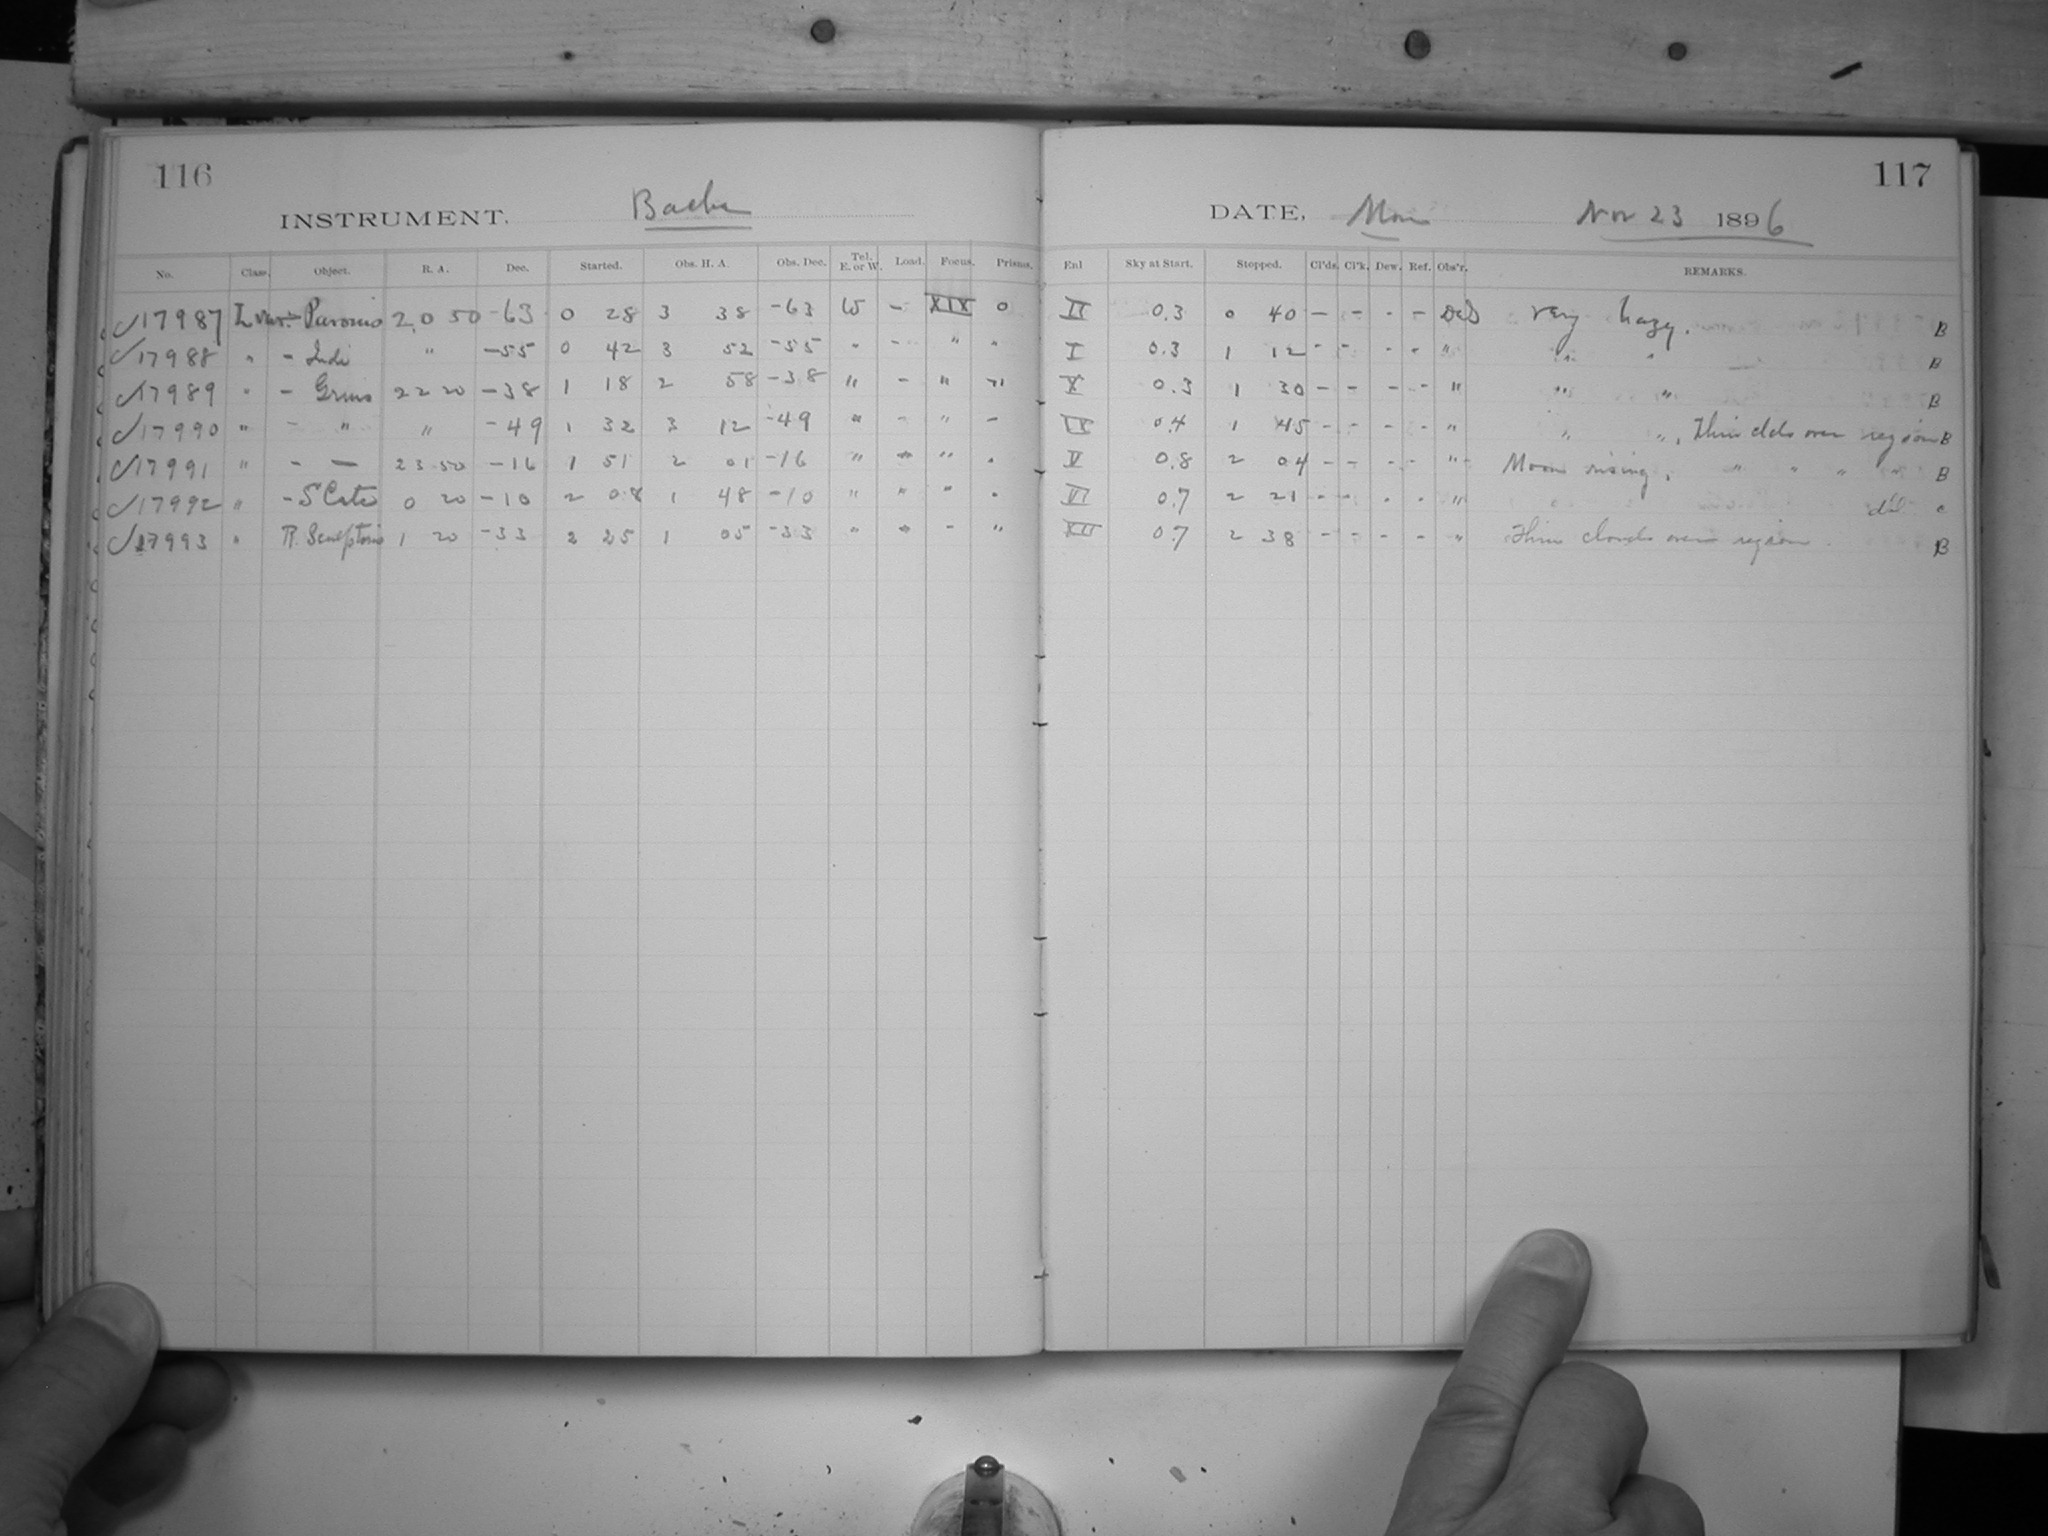 116
INSTRUMENT. Bache
No. Class. Object. R. A. Dec. Started. Obs. H. A. Obs. Dec. Tel. E. or W. Load. Focus. Prisms.
17987 L var. - Pavonis 20 50 -63 0 28 3 38 -63 W - XIX 0
17988 " - Indi " -55 0 42 3 52 -55 " - " "
17989 " - Gruis 22 20 -38 1 18 2 58 -38 " - " "
17990 " - " " -49 1 32 3 12 -49 " - " -
17991 " - - 23 50 -16 1 51 2 01 -16 " " " "
17992 " - S Ceti 0 20 -10 2 08 1 48 -10 " " " "
17993 " R. Sculptoris 1 20 -33 2 25 1 05 -33 " " - "
117
DATE, Mon Nov 23 1896
Enl Sky at Start. Stopped. Cl'ds. Cl'k. Dew. Ref. Obs'r. REMARKS.
0.3 0 40 - - - - very hazy. B
I 0.3 1 12 - - - - " " " B
X 0.3 1 30 - - - - " " " B
0.4 1 45 - - - - " " ", Thin clds over region B
V 0.8 2 04 - - - - " Moon rising, " " " " B
VI 0.7 2 21 - - - - "
XII 0.7 2 38 - - - - " Thin clouds over region. B